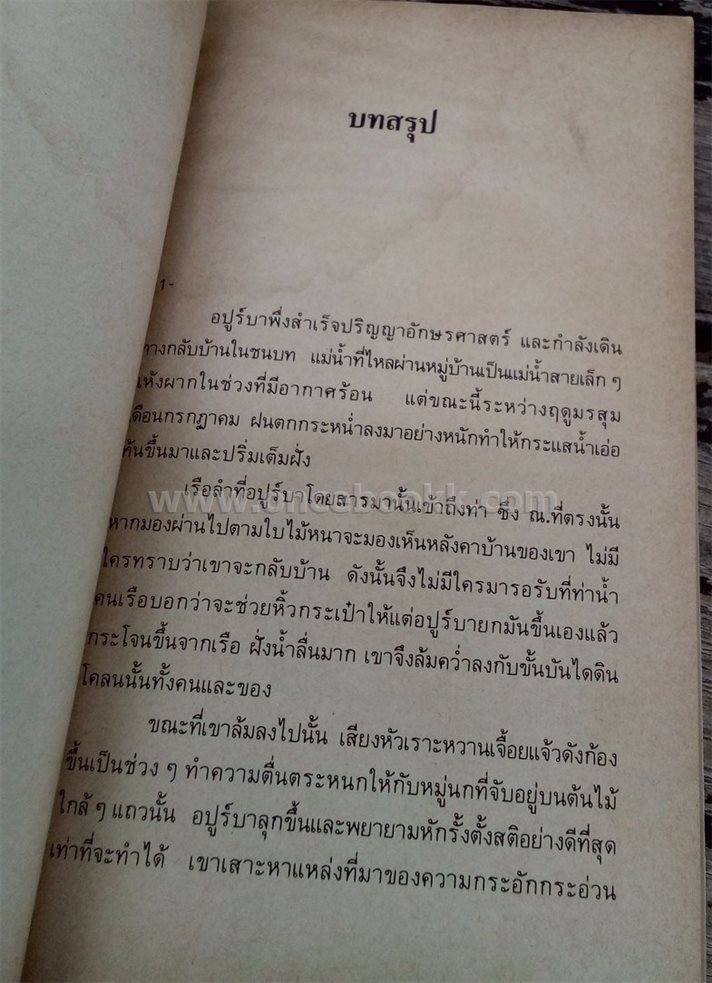 บทสรุป
1-
อปูร์บาพึ่งสำเร็จปริญญาอักษรศาสตร์ และกำลังเดิน
ทางกลับบ้านในชนบท แม่น้ำที่ไหลผ่านหมู่บ้านเป็นแม่น้ำสายเล็ก ๆ
แห้งผากในช่วงที่มีอากาศร้อน แต่ขณะนี้ระหว่างฤดูมรสุม
เดือนกรกฎาคม ฝนตกกระหน่ำลงมาอย่างหนักทำให้กระแสน้ำเอ่อ
ท้นขึ้นมาและปริ่มเต็มฝั่ง
เรือลำที่อปูร์บาโดยสารมานั้นเข้าถึงท่า ซึ่ง ณ.ที่ตรงนั้น
หากมองผ่านไปตามใบไม้หนาจะมองเห็นหลังคาบ้านของเขา ไม่มี
ใครทราบว่าเขาจะกลับบ้าน ดังนั้นจึงไม่มีใครมารอรับที่ท่าน้ำ
คนเรือบอกว่าจะช่วยหิ้วกระเป๋าให้แต่อปูร์บายกมันขึ้นเองแล้ว
กระโจนขึ้นจากเรือ ฝั่งน้ำลื่นมาก เขาจึงล้มคว่ำลงกับขั้นบันไดดิน
โคลนนั้นทั้งคนและของ
ขณะที่เขาล้มลงไปนั้น เสียงหัวเราะหวานเจื้อยแจ้วดังก้อง
ขึ้นเป็นช่วง ๆ ทำความตื่นตระหนกให้กับหมู่นกที่จับอยู่บนต้นไม้
ใกล้ ๆ แถวนั้น อปูร์บาลุกขึ้นและพยายามหักรั้งตั้งสติอย่างดีที่สุด
เท่าที่จะทำได้ เขาเสาะหาแหล่งที่มาของความกระอักกระอ่วน